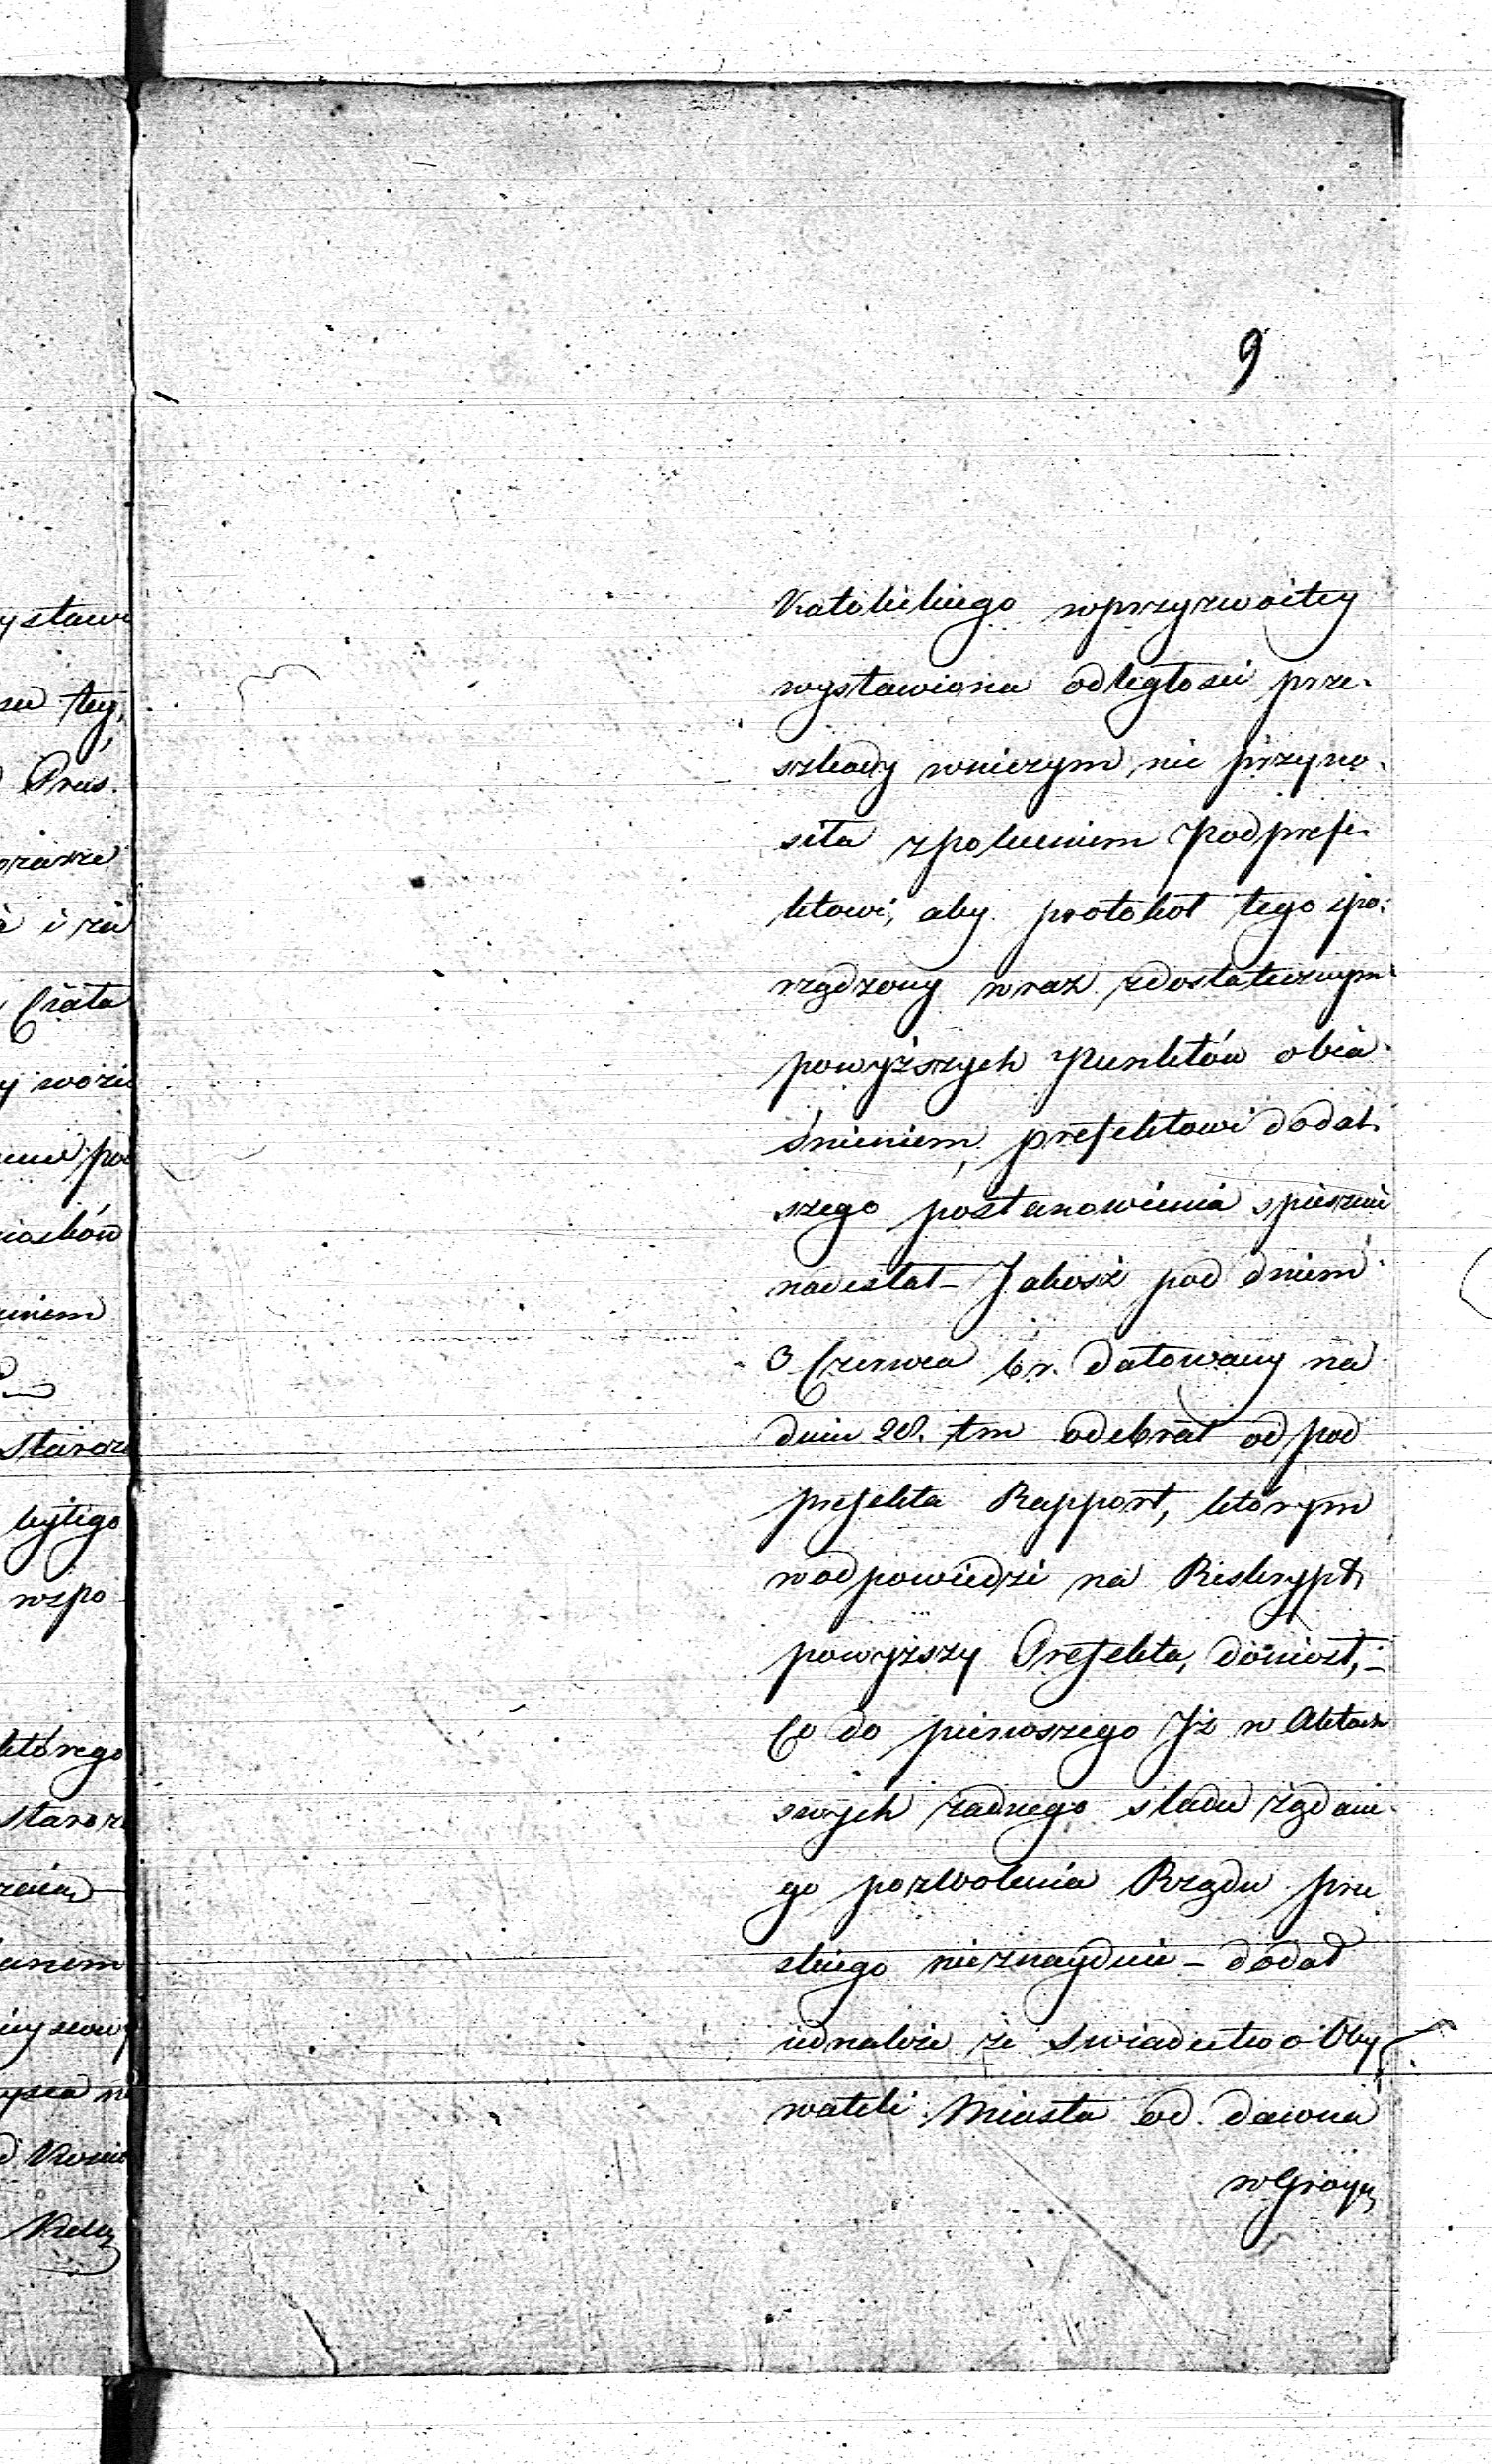 9
Katolickiego wprzyzwoitey
wystawiona odległości prze-
szkody wniczym nie przyno-
siła zpoleceniem Podprefe-
ktowi, aby protokół tego spo-
rządzony wraz zdostatecznym
powyższych Punktów obia-
śnieniem, prefektowi do dal-
szego postanowienia spiesznie
nadesłał – Jakoż pod dniem
3 Czerwca b r. datowany na
dniu 28. tm odebrał od pod
prefekta Rapport, którym
wodpowiedzi na Reskrypt
powyższy Prefekta, doniosł, –
Co do pierwszego Iż w Aktach
swych żadnego sladu żądane-
go pozwolenia Rządu pru
skiego nieznayduie – dodał
iednakże że swiadectwo Oby
wateli Miasta od dawna
ystawi
tey,
Prus.
i za
Ciała
y wozie
pod
nioskow
niem
Staroz
bytego
wzpo
którego
staroz
anem
Kości